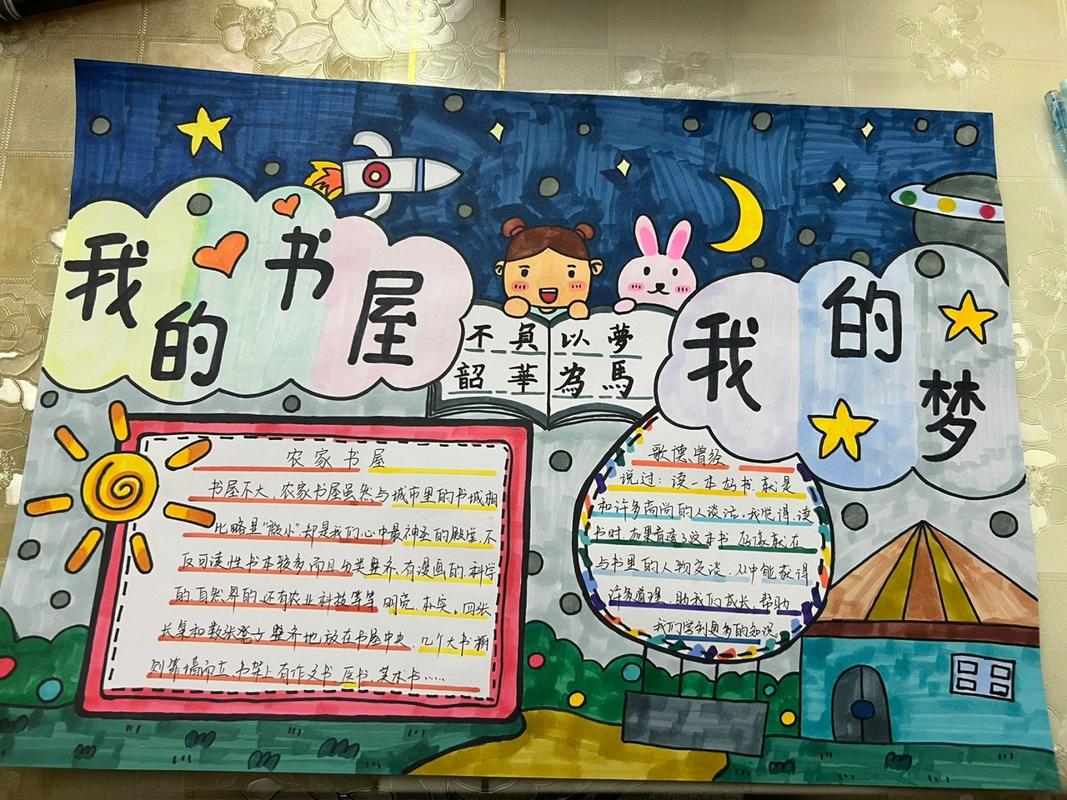 我的书屋
我的梦
不負 以夢
韶華 為馬
农家书屋
书屋不大,农家书屋虽然与城市里的书城相
比略显“袖小”却是我们心中最神圣的殿堂,不
仅可读性书本较多,而且分类整齐,有漫画的,科学
的,自然界的,还有农业科技等等 明亮、朴实,四张
长桌和数张凳子整齐地放在书屋中央,几个大书棚
则靠墙而立,书架上有作文书 医书 美术书……
歌德曾经
说过:读一本好书,就是
和许多高尚的人谈话。我觉得,读
书时,如果看透了这本书 应该就在
与书里的人物交谈,从中能获得
许多道理,助我们成长,帮助
我们学到更多的知识。